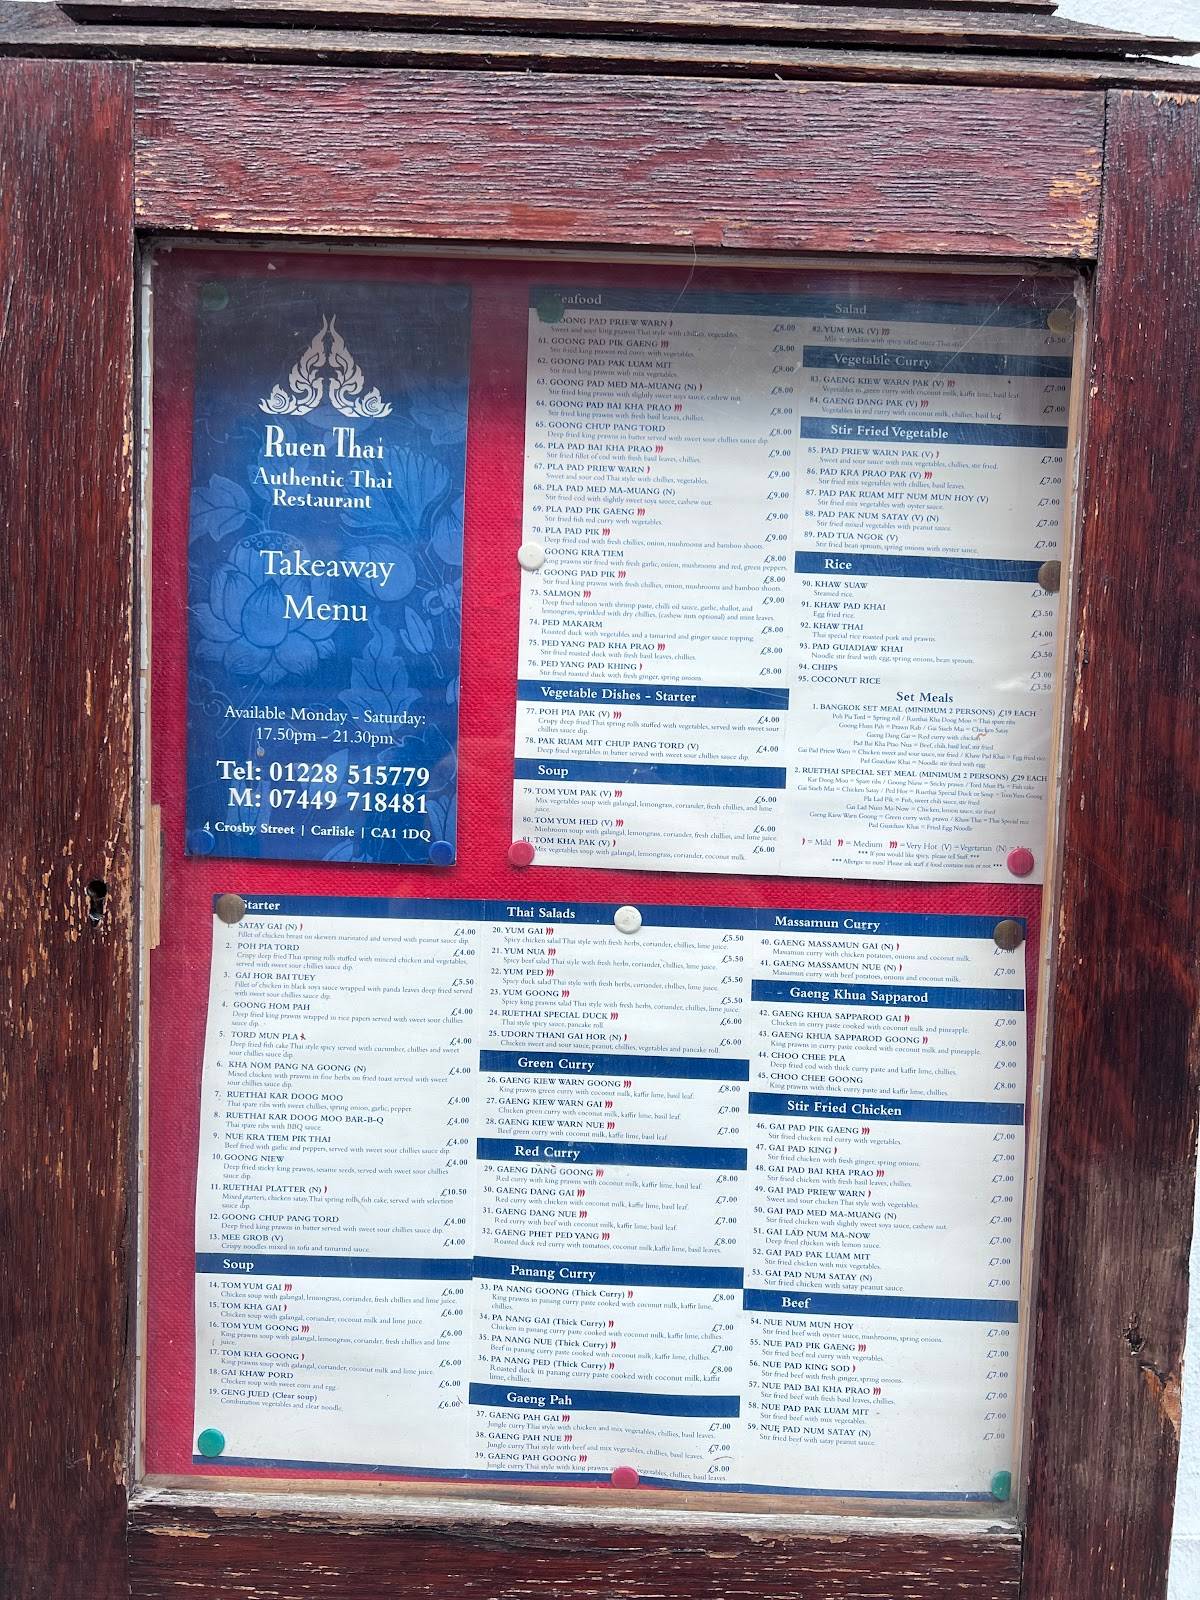 Ruen Thai
Authentic Thai
Restaurant
Takeaway
Menu
Available Monday - Saturday:
17.50pm - 21.30pm
Tel: 01228 515779
M: 07449 718481
4 Crosby Street | Carlisle | CA1 1DQ
Seafood
GOONG PAD PRIEW WARN £8.00
Sweet and sour king prawns Thai style with chillies, vegetables.
61. GOONG PAD PIK GAENG £8.00
Stir fried king prawns red curry with vegetables.
62. GOONG PAD PAK LUAM MIT £8.00
Stir fried king prawns with mix vegetables.
63. GOONG PAD MED MA-MUANG (N) £8.00
Stir fried king prawns with slightly sweet soya sauce, cashew nut.
64. GOONG PAD BAI KHA PRAO £8.00
Stir fried king prawns with fresh basil leaves, chillies.
65. GOONG CHUP PANG TORD £8.00
Deep fried king prawns in batter served with sweet sour chillies sauce dip.
66. PLA PAD BAI KHA PRAO £9.00
Stir fried fillet of cod with fresh basil leaves, chillies.
67. PLA PAD PRIEW WARN £9.00
Sweet and sour cod Thai style with chillies, vegetables.
68. PLA PAD MED MA-MUANG (N) £9.00
Stir fried cod with slightly sweet soya sauce, cashew nut.
69. PLA PAD PIK GAENG £9.00
Stir fried fish red curry with vegetables.
70. PLA PAD PIK £9.00
Deep fried cod with fresh chillies, onion, mushrooms and bamboo shoots.
GOONG KRA TIEM £8.00
King prawns stir fried with fresh garlic, onion, mushrooms and red, green peppers.
72. GOONG PAD PIK £8.00
Stir fried king prawns with fresh chillies, onion, mushrooms and bamboo shoots.
73. SALMON £9.00
Deep fried salmon with shrimp paste, chilli oil sauce, garlic, shallot, and
lemongrass, sprinkled with dry chillies, (cashew nuts optional) and mint leaves.
74. PED MAKARM £8.00
Roasted duck with vegetables and a tamarind and ginger sauce topping.
75. PED YANG PAD KHA PRAO £8.00
Stir fried roasted duck with fresh basil leaves, chillies.
76. PED YANG PAD KHING £8.00
Stir fried roasted duck with fresh ginger, spring onions.
Vegetable Dishes - Starter
77. POH PIA PAK (V) £4.00
Crispy deep fried Thai spring rolls stuffed with vegetables, served with sweet
sour chillies sauce dip.
78. PAK RUAM MIT CHUP PANG TORD (V) £4.00
Deep fried vegetables in batter served with sweet sour chillies sauce dip.
Soup
79. TOM YUM PAK (V) £6.00
Mix vegetables soup with galangal, lemongrass, coriander, fresh chillies and lime
juice.
80. TOM YUM HED (V) £6.00
Mushroom soup with galangal, lemongrass, coriander, fresh chillies, and lime juice.
81. TOM KHA PAK (V) £6.00
Mix vegetables soup with galangal, lemongrass, coriander, coconut milk.
Salad
82. YUM PAK (V) £5.50
Mix vegetables with spicy salad sauce Thai style
Vegetable Curry
83. GAENG KIEW WARN PAK (V) £7.00
Vegetables in green curry with coconut milk, kaffir lime, basil leaf.
84. GAENG DANG PAK (V) £7.00
Vegetables in red curry with coconut milk, chillies, basil leaf.
Stir Fried Vegetable
85. PAD PRIEW WARN PAK (V) £7.00
Sweet and sour sauce with mix vegetables, chillies, stir fried.
86. PAD KRA PRAO PAK (V) £7.00
Stir fried mix vegetables with chillies, basil leaves.
87. PAD PAK RUAM MIT NUM MUN HOY (V) £7.00
Stir fried mix vegetables with oyster sauce.
88. PAD PAK NUM SATAY (V) (N) £7.00
Stir fried mixed vegetables with peanut sauce.
89. PAD TUA NGOK (V) £7.00
Stir fried bean sprouts, spring onions with oyster sauce.
Rice
90. KHAW SUAW £3.00
Steamed rice.
91. KHAW PAD KHAI £3.50
Egg fried rice.
92. KHAW THAI £4.00
Thai special rice roasted pork and prawns.
93. PAD GUAIDIAW KHAI £3.50
Noodle stir fried with egg, spring onions, bean sprouts.
94. CHIPS £3.00
95. COCONUT RICE £3.50
Set Meals
1. BANGKOK SET MEAL (MINIMUM 2 PERSONS) £19 EACH
Poh Pia Tord = Spring roll / Ruethai Kha Doog Moo = Thai spare ribs
Goong Hom Pah = Prawn Rab / Gai Steeh Mai = Chicken Satay
Gaeng Dang Gai = Red curry with chicken
Pad Bai Kha Prao Nua = Beef, chili, basil leaf, stir fried
Gai Pad Priew Warn = Chicken sweet and sour sauce, stir fried / Khaw Pad Khai = Egg fried rice
Pad Guaidiaw Khai = Noodle stir fried with egg
2. RUETHAI SPECIAL SET MEAL (MINIMUM 2 PERSONS) £29 EACH
Kar Doog Moo = Spare ribs / Goong Niew = Sticky prawn / Tord Mun Pla = Fish cake
Gai Steeh Mai = Chicken Satay / Ped Hor = Ruethai Special Duck or Soup = Tom Yum Goong
Pla Lad Pik = Fish, sweet chili sauce, stir fried
Gai Lad Num Ma-Now = Chicken, lemon sauce, stir fried
Gaeng Kiew Warn Goong = Green curry with prawn / Khaw Thai = Thai Special rice
Pad Guaidiaw Khai = Fried Egg Noodle
= Mild = Medium = Very Hot (V) = Vegetarian (N) =
*** If you would like spicy, please tell Staff ***
*** Allergic to nuts? Please ask staff if food contains nuts or not ***
Starter
1. SATAY GAI (N) £4.00
Fillet of chicken breast on skewers marinated and served with peanut sauce dip.
2. POH PIA TORD £4.00
Crispy deep fried Thai spring rolls stuffed with minced chicken and vegetables,
served with sweet sour chillies sauce dip.
3. GAI HOR BAI TUEY £5.50
Fillet of chicken in black soya sauce wrapped with panda leaves deep fried served
with sweet sour chillies sauce dip.
4. GOONG HOM PAH £4.00
Deep fried king prawns wrapped in rice papers served with sweet sour chillies
sauce dip.
5. TORD MUN PLA £4.00
Deep fried fish cake Thai style spicy served with cucumber, chillies and sweet
sour chillies sauce dip.
6. KHA NOM PANG NA GOONG (N) £4.00
Mixed chicken with prawns in fine herbs on fried toast served with sweet
sour chillies sauce dip.
7. RUETHAI KAR DOOG MOO £4.00
Thai spare ribs with sweet chillies, spring onion, garlic, pepper.
8. RUETHAI KAR DOOG MOO BAR-B-Q £4.00
Thai spare ribs with BBQ sauce.
9. NUE KRA TIEM PIK THAI £4.00
Beef fried with garlic and peppers, served with sweet sour chillies sauce dip.
10. GOONG NIEW £4.00
Deep fried sticky king prawns, sesame seeds, served with sweet sour chillies
sauce dip.
11. RUETHAI PLATTER (N) £10.50
Mixed starters, chicken satay, Thai spring rolls, fish cake, served with selection
sauce dip.
12. GOONG CHUP PANG TORD £4.00
Deep fried king prawns in batter served with sweet sour chillies sauce dip.
13. MEE GROB (V) £4.00
Crispy noodles mixed in tofu and tamarind sauce.
Soup
14. TOM YUM GAI £6.00
Chicken soup with galangal, lemongrass, coriander, fresh chillies and lime juice.
15. TOM KHA GAI £6.00
Chicken soup with galangal, coriander, coconut milk and lime juice.
16. TOM YUM GOONG £6.00
King prawns soup with galangal, lemongrass, coriander, fresh chillies and lime
juice.
17. TOM KHA GOONG £6.00
King prawns soup with galangal, coriander, coconut milk and lime juice.
18. GAI KHAW PORD £6.00
Chicken soup with sweet corn and egg.
19. GENG JUED (Clear soup) £6.00
Combination vegetables and clear noodle.
Thai Salads
20. YUM GAI £5.50
Spicy chicken salad Thai style with fresh herbs, coriander, chillies, lime juice.
21. YUM NUA £5.50
Spicy beef salad Thai style with fresh herbs, coriander, chillies, lime juice.
22. YUM PED £5.50
Spicy duck salad Thai style with fresh herbs, coriander, chillies, lime juice.
23. YUM GOONG £5.50
Spicy king prawns salad Thai style with fresh herbs, coriander, chillies, lime juice.
24. RUETHAI SPECIAL DUCK £6.00
Thai style spicy sauce, pancake roll.
25. UDORN THANI GAI HOR (N) £6.00
Chicken sweet and sour sauce, peanut, chillies, vegetables and pancake roll.
Green Curry
26. GAENG KIEW WARN GOONG £8.00
King prawns green curry with coconut milk, kaffir lime, basil leaf.
27. GAENG KIEW WARN GAI £7.00
Chicken green curry with coconut milk, kaffir lime, basil leaf.
28. GAENG KIEW WARN NUE £7.00
Beef green curry with coconut milk, kaffir lime, basil leaf.
Red Curry
29. GAENG DANG GOONG £8.00
Red curry with king prawns with coconut milk, kaffir lime, basil leaf.
30. GAENG DANG GAI £7.00
Red curry with chicken with coconut milk, kaffir lime, basil leaf.
31. GAENG DANG NUE £7.00
Red curry with beef with coconut milk, kaffir lime, basil leaf.
32. GAENG PHET PED YANG £8.00
Roasted duck red curry with tomatoes, coconut milk, kaffir lime, basil leaves.
Panang Curry
33. PA NANG GOONG (Thick Curry) £8.00
King prawns in panang curry paste cooked with coconut milk, kaffir lime,
chillies.
34. PA NANG GAI (Thick Curry) £7.00
Chicken in panang curry paste cooked with coconut milk, kaffir lime, chillies.
35. PA NANG NUE (Thick Curry) £7.00
Beef in panang curry paste cooked with coconut milk, kaffir lime, chillies.
36. PA NANG PED (Thick Curry) £8.00
Roasted duck in panang curry paste cooked with coconut milk, kaffir
lime, chillies.
Gaeng Pah
37. GAENG PAH GAI £7.00
Jungle curry Thai style with chicken and mix vegetables, chillies, basil leaves.
38. GAENG PAH NUE £7.00
Jungle curry Thai style with beef and mix vegetables, chillies, basil leaves.
39. GAENG PAH GOONG £8.00
Jungle curry Thai style with king prawns and vegetables, chillies, basil leaves.
Massamun Curry
40. GAENG MASSAMUN GAI (N)
Massamun curry with chicken potatoes, onions and coconut milk.
41. GAENG MASSAMUN NUE (N) £7.00
Massamun curry with beef potatoes, onions and coconut milk.
Gaeng Khua Sapparod
42. GAENG KHUA SAPPAROD GAI £7.00
Chicken in curry paste cooked with coconut milk and pineapple.
43. GAENG KHUA SAPPAROD GOONG £8.00
King prawns in curry paste cooked with coconut milk and pineapple.
44. CHOO CHEE PLA £9.00
Deep fried cod with thick curry paste and kaffir lime, chillies.
45. CHOO CHEE GOONG £8.00
King prawns with thick curry paste and kaffir lime, chillies.
Stir Fried Chicken
46. GAI PAD PIK GAENG £7.00
Stir fried chicken red curry with vegetables.
47. GAI PAD KING £7.00
Stir fried chicken with fresh ginger, spring onions.
48. GAI PAD BAI KHA PRAO £7.00
Stir fried chicken with fresh basil leaves, chillies.
49. GAI PAD PRIEW WARN £7.00
Sweet and sour chicken Thai style with vegetables.
50. GAI PAD MED MA-MUANG (N) £7.00
Stir fried chicken with slightly sweet soya sauce, cashew nut.
51. GAI LAD NUM MA-NOW £7.00
Deep fried chicken with lemon sauce.
52. GAI PAD PAK LUAM MIT £7.00
Stir fried chicken with mix vegetables.
53. GAI PAD NUM SATAY (N) £7.00
Stir fried chicken with satay peanut sauce.
Beef
54. NUE NUM MUN HOY £7.00
Stir fried beef with oyster sauce, mushrooms, spring onions.
55. NUE PAD PIK GAENG £7.00
Stir fried beef red curry with vegetables.
56. NUE PAD KING SOD £7.00
Stir fried beef with fresh ginger, spring onions.
57. NUE PAD BAI KHA PRAO £7.00
Stir fried beef with fresh basil leaves, chillies.
58. NUE PAD PAK LUAM MIT £7.00
Stir fried beef with mix vegetables.
59. NUE PAD NUM SATAY (N) £7.00
Stir fried beef with satay peanut sauce.